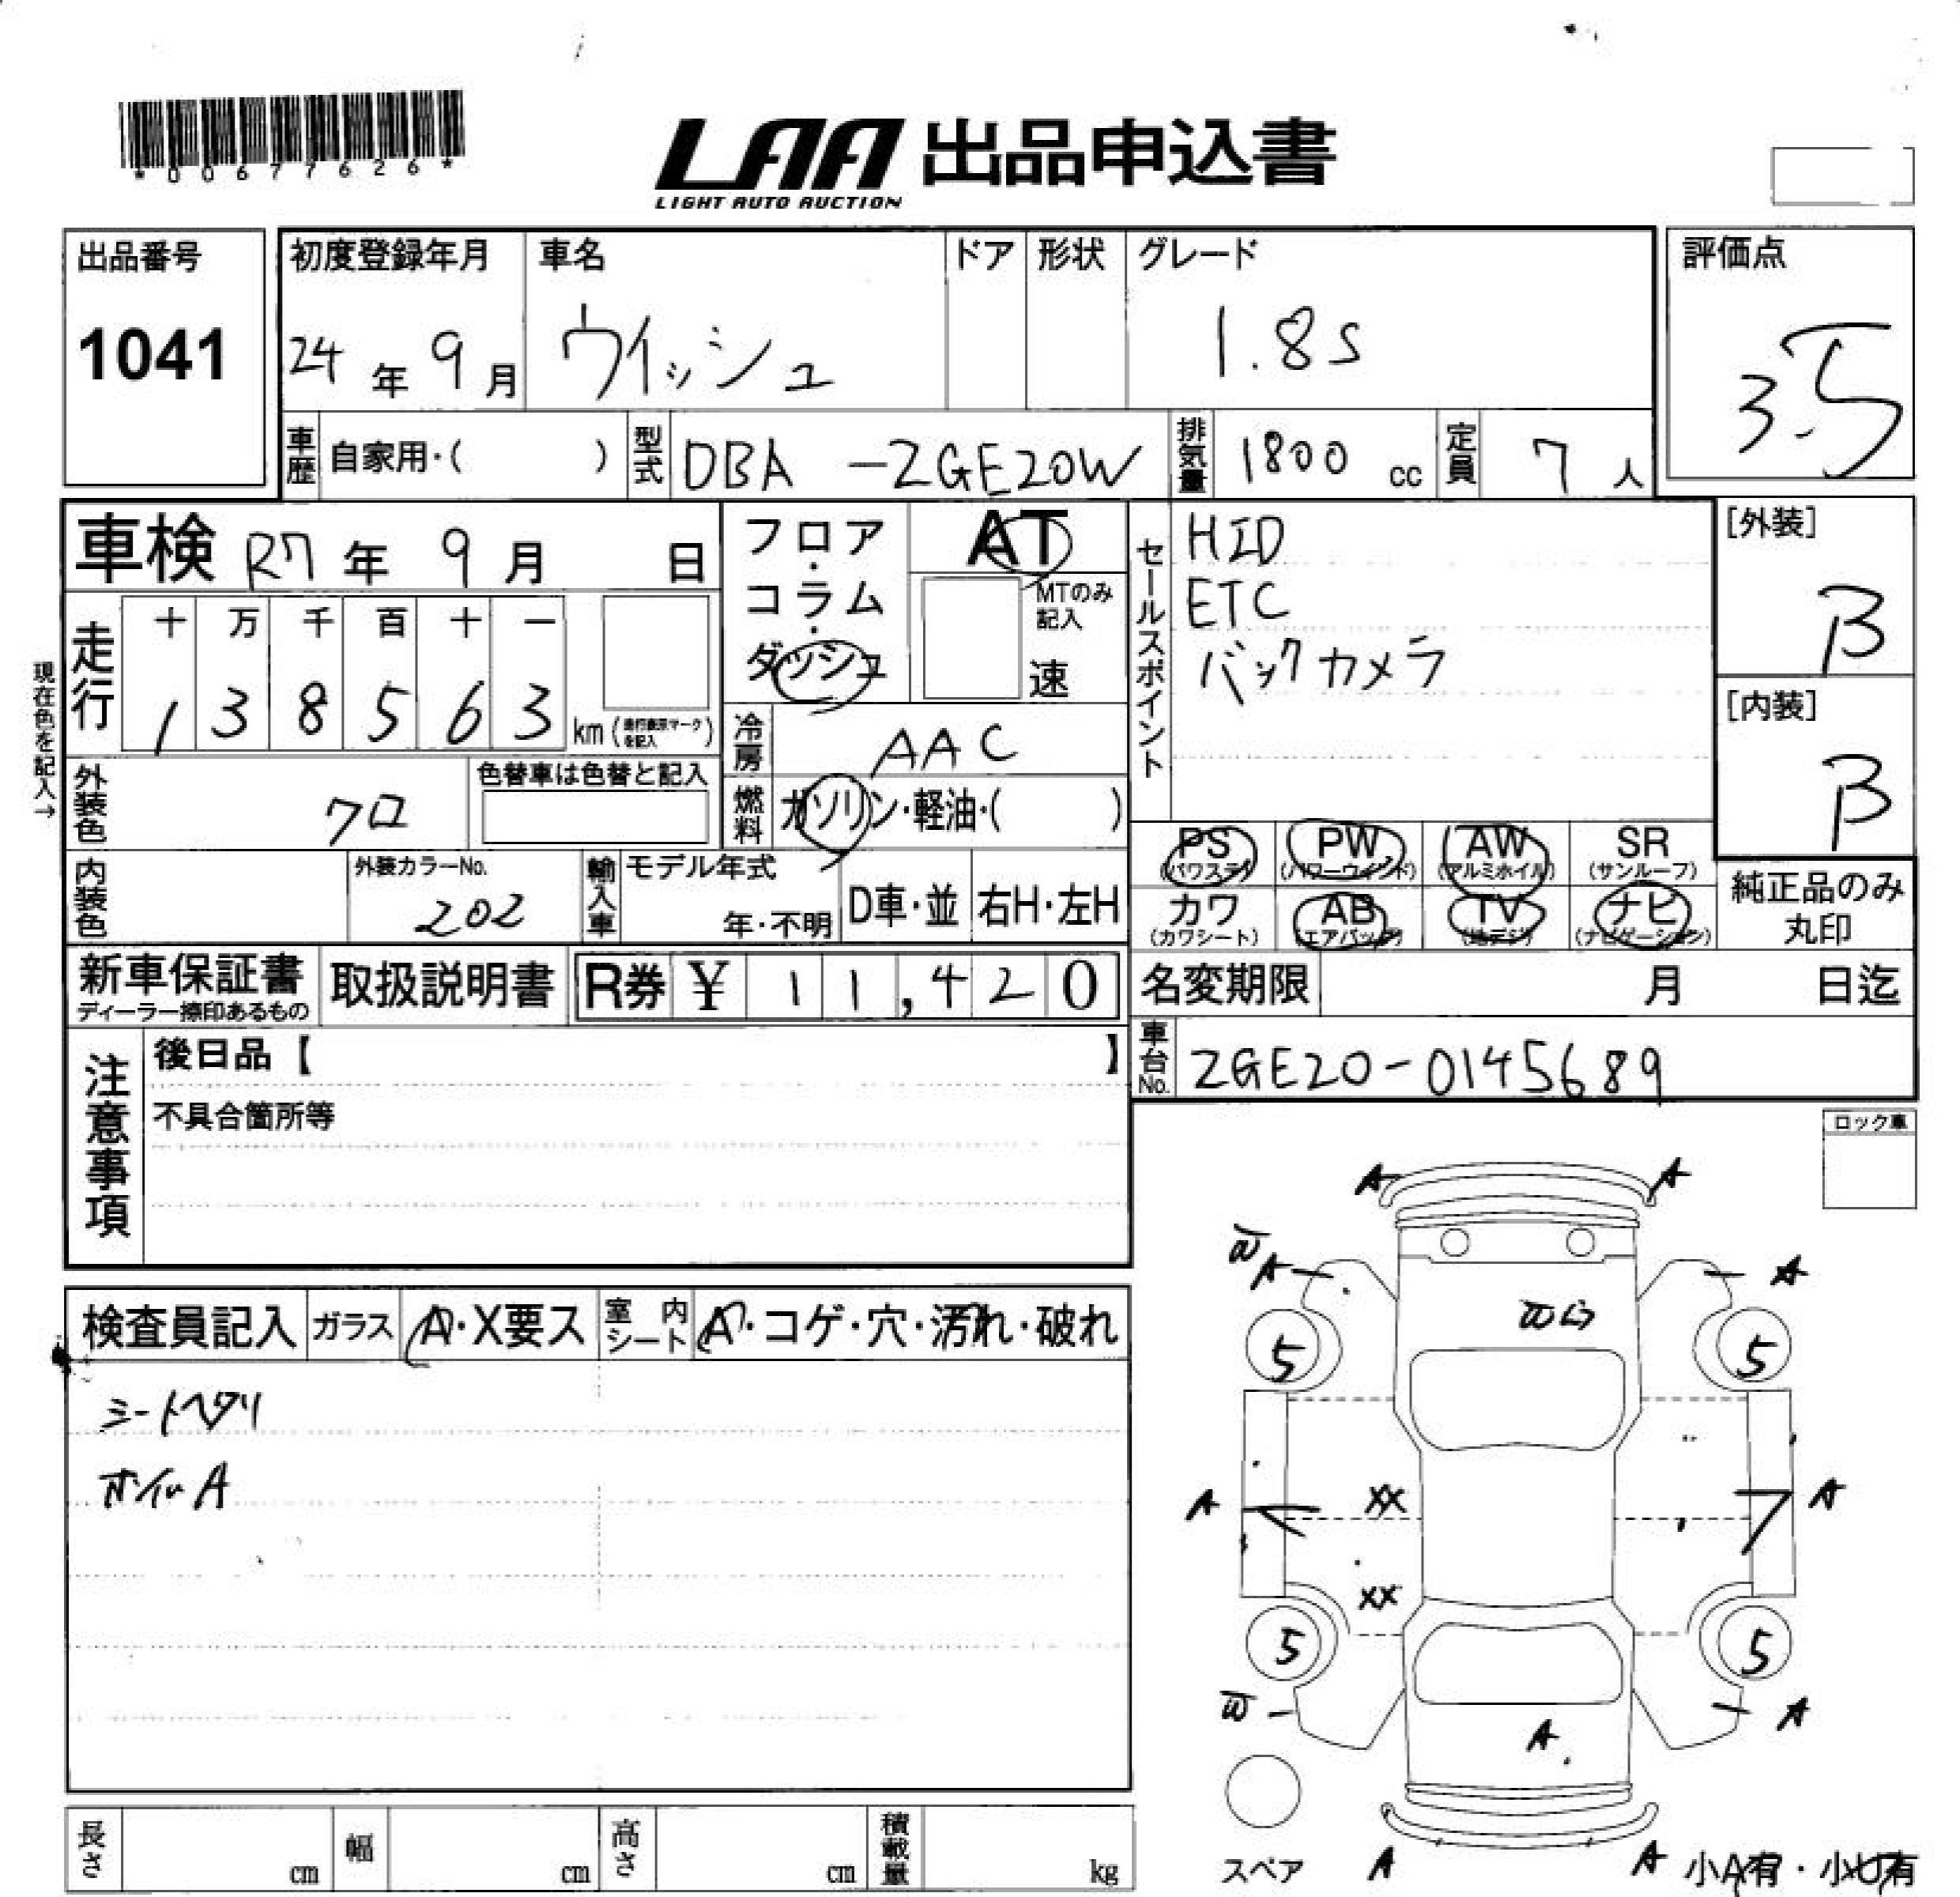 *00677626*
LAA 出品申込書
LIGHT AUTO AUCTION
出品番号 1041
初度登録年月 24年9月
車名 ウィッシュ
ドア
形状
グレード 1.8S
評価点 3.5
車歴 自家用・( )
型式 DBA -ZGE20W
排気量 1800 cc
定員 7人
車検 R7年 9月 日
フロア・コラム・ダッシュ
AT
MTのみ記入
速
セールスポイント
HID
ETC
バックカメラ
[外装] B
[内装] B
現在色を記入→
走行
十 万 千 百 十 一
1 3 8 5 6 3 km
冷房 AAC
外装色 クロ
色替車は色替と記入
燃料 ガソリン・軽油・( )
PS (パワステ)
PW (パワーウィンド)
AW (アルミホイル)
SR (サンルーフ)
カワ (カワシート)
AB (エアバック)
TV (地デジ)
ナビ (ナビゲーション)
純正品のみ丸印
内装色
外装カラーNo. 202
輸入車
モデル年式 年・不明
D車・並
右H・左H
新車保証書
ディーラー捺印あるもの
取扱説明書
R券 ¥ 11,420
名変期限 月 日迄
車台No. ZGE20-0145689
注意事項
後日品【 】
不具合箇所等
ロック車
検査員記入
ガラス A・X要ス
室内シート A・コゲ・穴・汚れ・破れ
シートヘタリ
ホイルA
A A
A A
5 5
A XX A
XX
5 5
A
A
スペア A A 小A有・小U有
長さ cm
幅 cm
高さ cm
積載量 kg